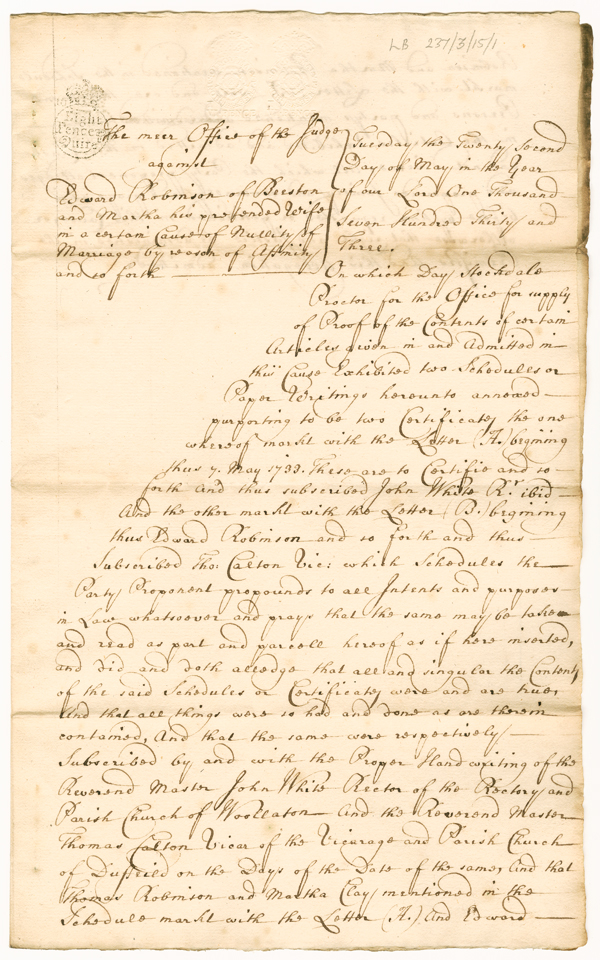 LB 237/3/15/1
Eight
Pence p
Quire
The meer Office of the Judge
against
Edward Robinson of Beeston
and Martha his pretended Wife
in a certain Cause of Nullity of
Marriage by reason of Affinity
and so forth
Tuesday the Twenty Second
Day of May in the Year
of our Lord One Thousand
Seven Hundred Thirty and
Three.
On which Day Stockdale
Proctor for the Office for supply
of Proof of the Contents of certain
Articles given in and Admitted in
this Cause Exhibited two Schedules or
Paper Writings hereunto annexed
purporting to be two Certificates the one
whereof markt with the Letter (A.) begining
thus 7. May 1733. These are to Certifie and so
forth And thus subscribed John White Rr. ibid
And the other markt with the Letter (B.) begining
thus Edward Robinson and so forth and thus
Subscribed Tho: Calton Vic: which Schedules the
Party Proponent propounds to all Intents and purposes
in Law whatsoever and prays that the same may be taken
and read as part and parcell hereof as if here inserted,
and did and doth alledge that all and singular the Contents
of the said Schedules or Certificates were and are true,
And that all things were so had and done as are therein
contained, And that the same were respectively
Subscribed by and with the Proper Handwriting of the
Reverend Master John White Rector of the Rectory and
Parish Church of Woollaton And the Reverend Master
Thomas Calton Vicar of the Vicarage and Parish Church
of Duffeild on the Days of the Date of the same, And that
Thomas Robinson and Martha Clay mentioned in the
Schedule markt with the Letter (A.) And Edward